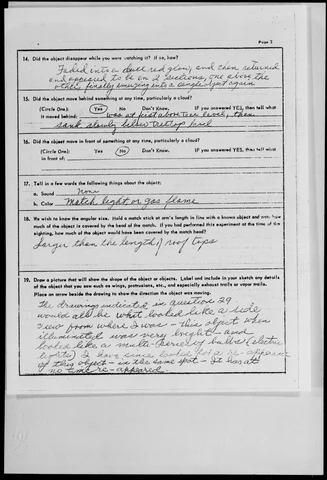 Page 3
14. Did the object disappear while you were watching it? If so, how?
Faded into a dull red glow, and then returned
and appeared to be on 2 sections, one above the
other, finally merging into a single object again
15. Did the object move behind something at any time, particularly a cloud?
(Circle One): Yes No Don't Know. IF you answered YES, then tell what
it moved behind: was at just above tree level, then
sank slowly below treetop level
16. Did the object move in front of something at any time, particularly a cloud?
(Circle One): Yes No Don't Know. IF you answered YES, then tell what
in front of:
17. Tell in a few words the following things about the object:
a. Sound None
b. Color Match light or gas flame
18. We wish to know the angular size. Hold a match stick at arm's length in line with a known object and note how
much of the object is covered by the head of the match. If you had performed this experiment at the time of the
sighting, how much of the object would have been covered by the match head?
Larger than the length of roof tops
19. Draw a picture that will show the shape of the object or objects. Label and include in your sketch any details
of the object that you saw such as wings, protrusions, etc., and especially exhaust trails or vapor trails.
Place an arrow beside the drawing to show the direction the object was moving.
The drawing indicated in question 29
would all be what looked like a side
view from where I was - This object when
illuminated was very bright - and
looked like a multi-series of bulbs (electric
lights) I have since looked for a re-appearance
of this object - in the same spot - It has at
no time re-appeared